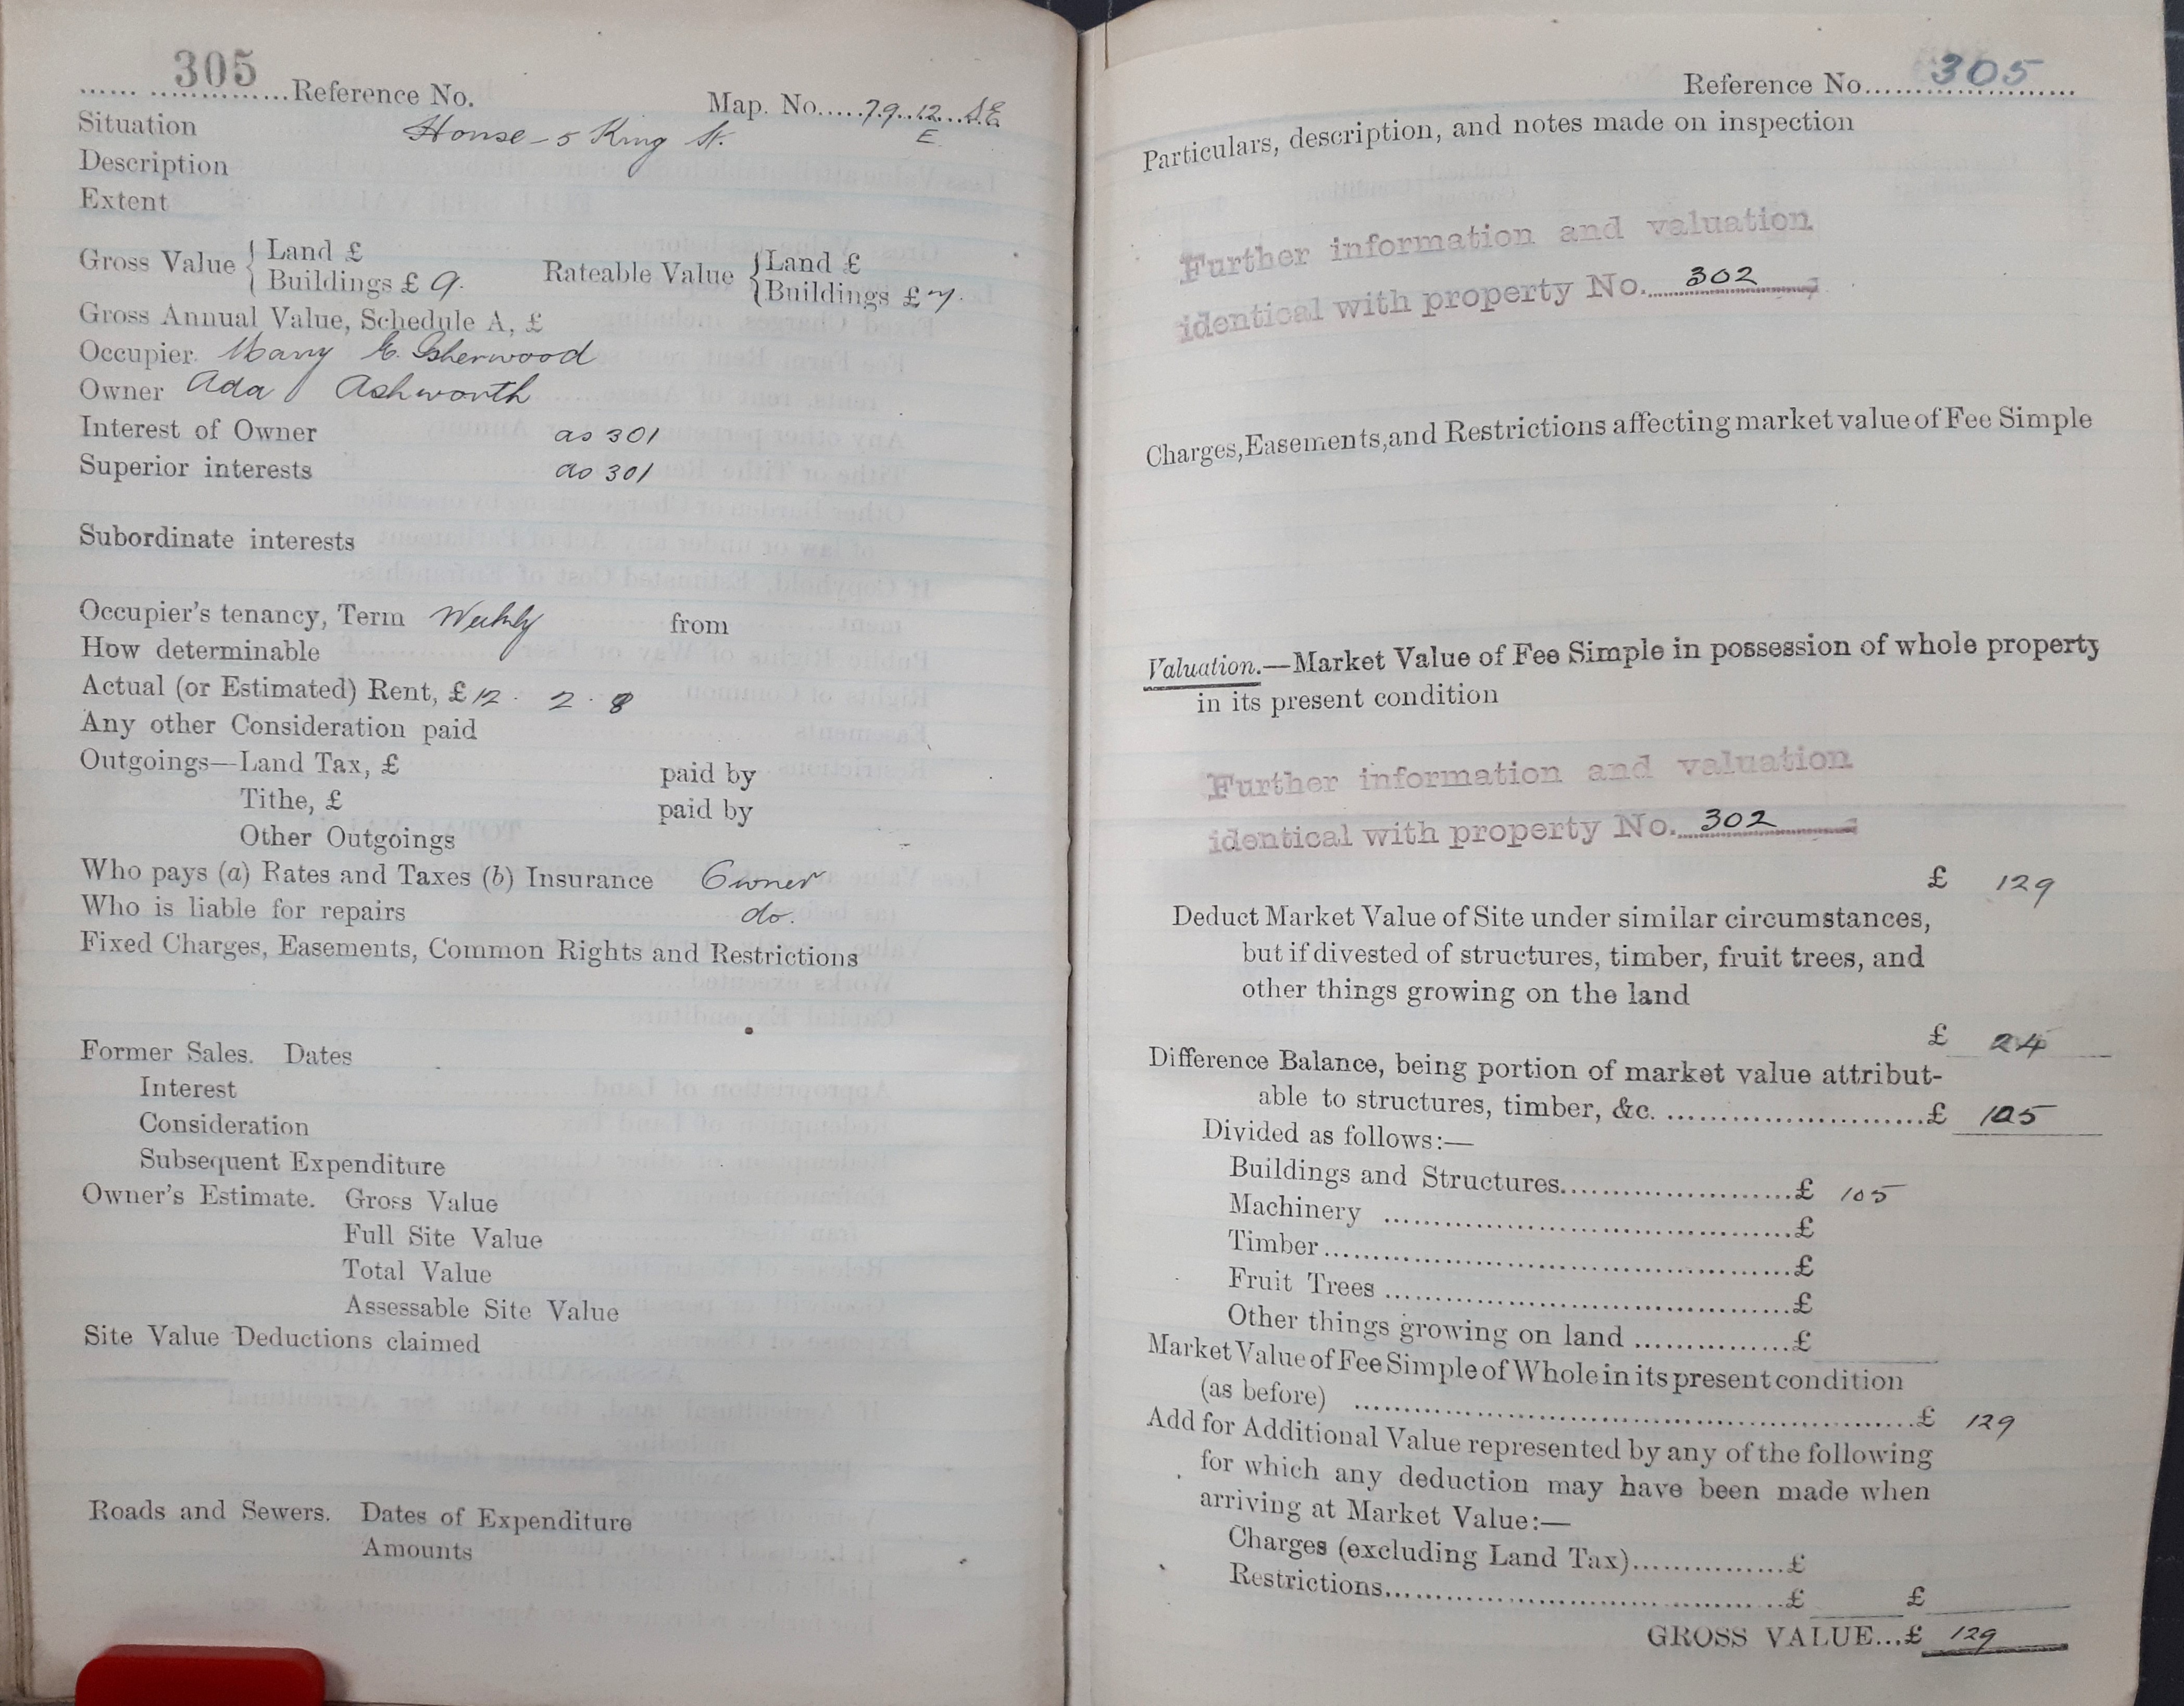 305 Reference No. Map. No. 79.12. S.E.
E
Situation House - 5 King St.
Description
Extent
Gross Value { Land £ Rateable Value { Land £
Buildings £ 9. Buildings £ 7.
Gross Annual Value, Schedule A, £
Occupier Mary E. Isherwood
Owner Ada Ashworth
Interest of Owner as 301
Superior interests as 301
Subordinate interests
Occupier's tenancy, Term Weekly from
How determinable
Actual (or Estimated) Rent, £ 12 . 2 . 8
Any other Consideration paid
Outgoings—Land Tax, £ paid by
Tithe, £ paid by
Other Outgoings
Who pays (a) Rates and Taxes (b) Insurance Owner
Who is liable for repairs do.
Fixed Charges, Easements, Common Rights and Restrictions
Former Sales. Dates
Interest
Consideration
Subsequent Expenditure
Owner's Estimate. Gross Value
Full Site Value
Total Value
Assessable Site Value
Site Value Deductions claimed
Roads and Sewers. Dates of Expenditure
Amounts
Reference No. 305
Particulars, description, and notes made on inspection
Further information and valuation
identical with property No. 302
Charges, Easements, and Restrictions affecting market value of Fee Simple
Valuation.—Market Value of Fee Simple in possession of whole property
in its present condition
Further information and valuation
identical with property No. 302
£ 129
Deduct Market Value of Site under similar circumstances,
but if divested of structures, timber, fruit trees, and
other things growing on the land
£ 24
Difference Balance, being portion of market value attribut-
able to structures, timber, &c. £ 105
Divided as follows:—
Buildings and Structures £ 105
Machinery £
Timber £
Fruit Trees £
Other things growing on land £
Market Value of Fee Simple of Whole in its present condition
(as before) £ 129
Add for Additional Value represented by any of the following
for which any deduction may have been made when
arriving at Market Value:—
Charges (excluding Land Tax) £
Restrictions £ £
GROSS VALUE...£ 129